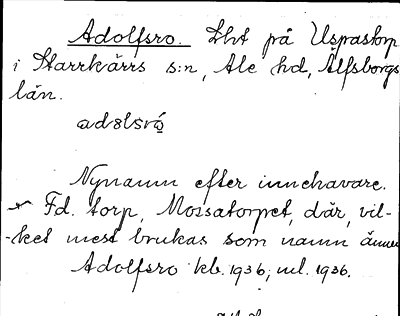 Adolfsro. Lht på Uspastorp
i Starrkärrs s:n, Ale hd, Älfsborgs
län.
adɷlsrꞷ̀
Nynamn efter innehavare.
Fd. torp, Mossatorpet, där, vil-
-ket mest brukas som namn ännu
Adolfsro kb. 1936; ml. 1936.